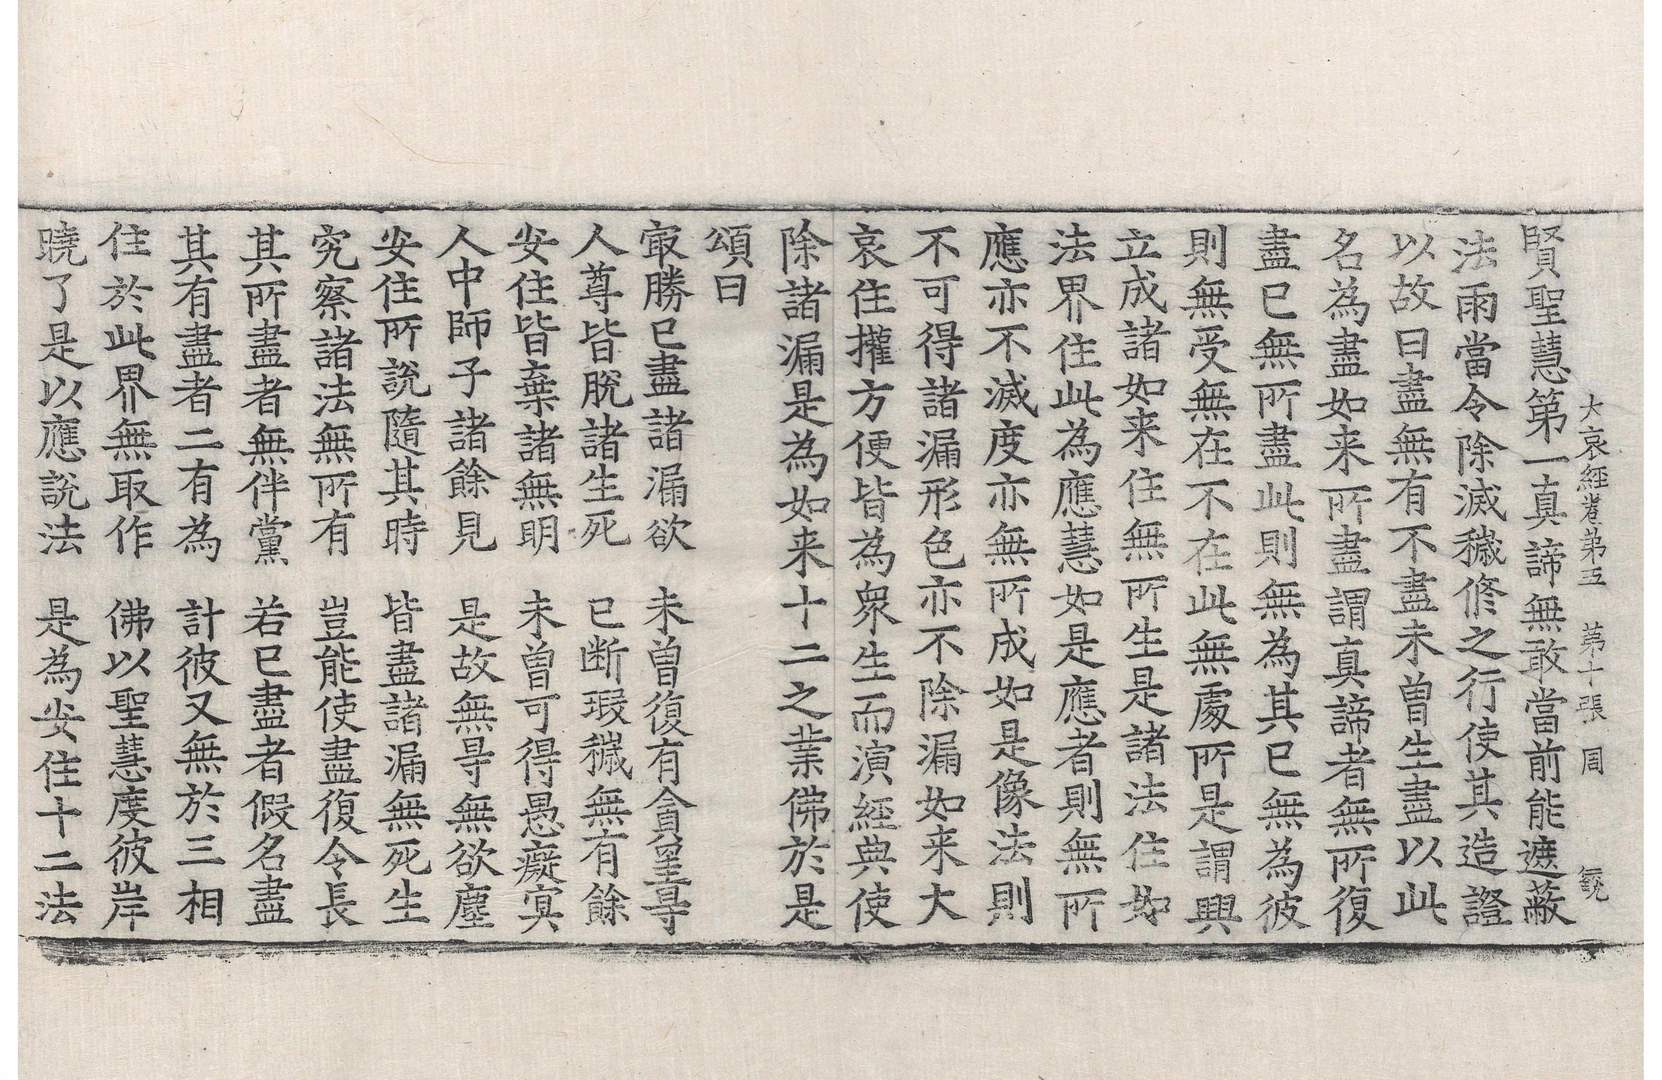 大哀經卷第五　第十張　周
賢聖慧第一真諦無敢當前能遮蔽
法雨當令除滅穢修之行使其造證
以故曰盡無有不盡未曾生盡以此
名為盡如来所盡謂真諦者無所復
盡已無所盡此則無為其已無為彼
則無受無在不在此無處所是謂興
立成諸如来住無所生是諸法住如
法界住此為應慧如是應者則無所
應亦不滅度亦無所成如是像法則
不可得諸漏形色亦不除漏如来大
哀住權方便皆為衆生而演經典使
除諸漏是為如来十二之業佛於是
頌曰
㝡勝已盡諸漏欲　未曽復有貪罣㝵
人尊皆脫諸生死　已断瑕穢無有餘
安住皆棄諸無明　未曽可得愚癡㝠
人中師子諸餘見　是故無㝵無欲塵
安住所說隨其時　皆盡諸漏無死生
究察諸法無所有　豈能使盡復令長
其所盡者無伴黨　若已盡者假名盡
其有盡者二有為　計彼又無於三相
住於此界無取作　佛以聖慧度彼岸
曉了是以應說法　是為安住十二法